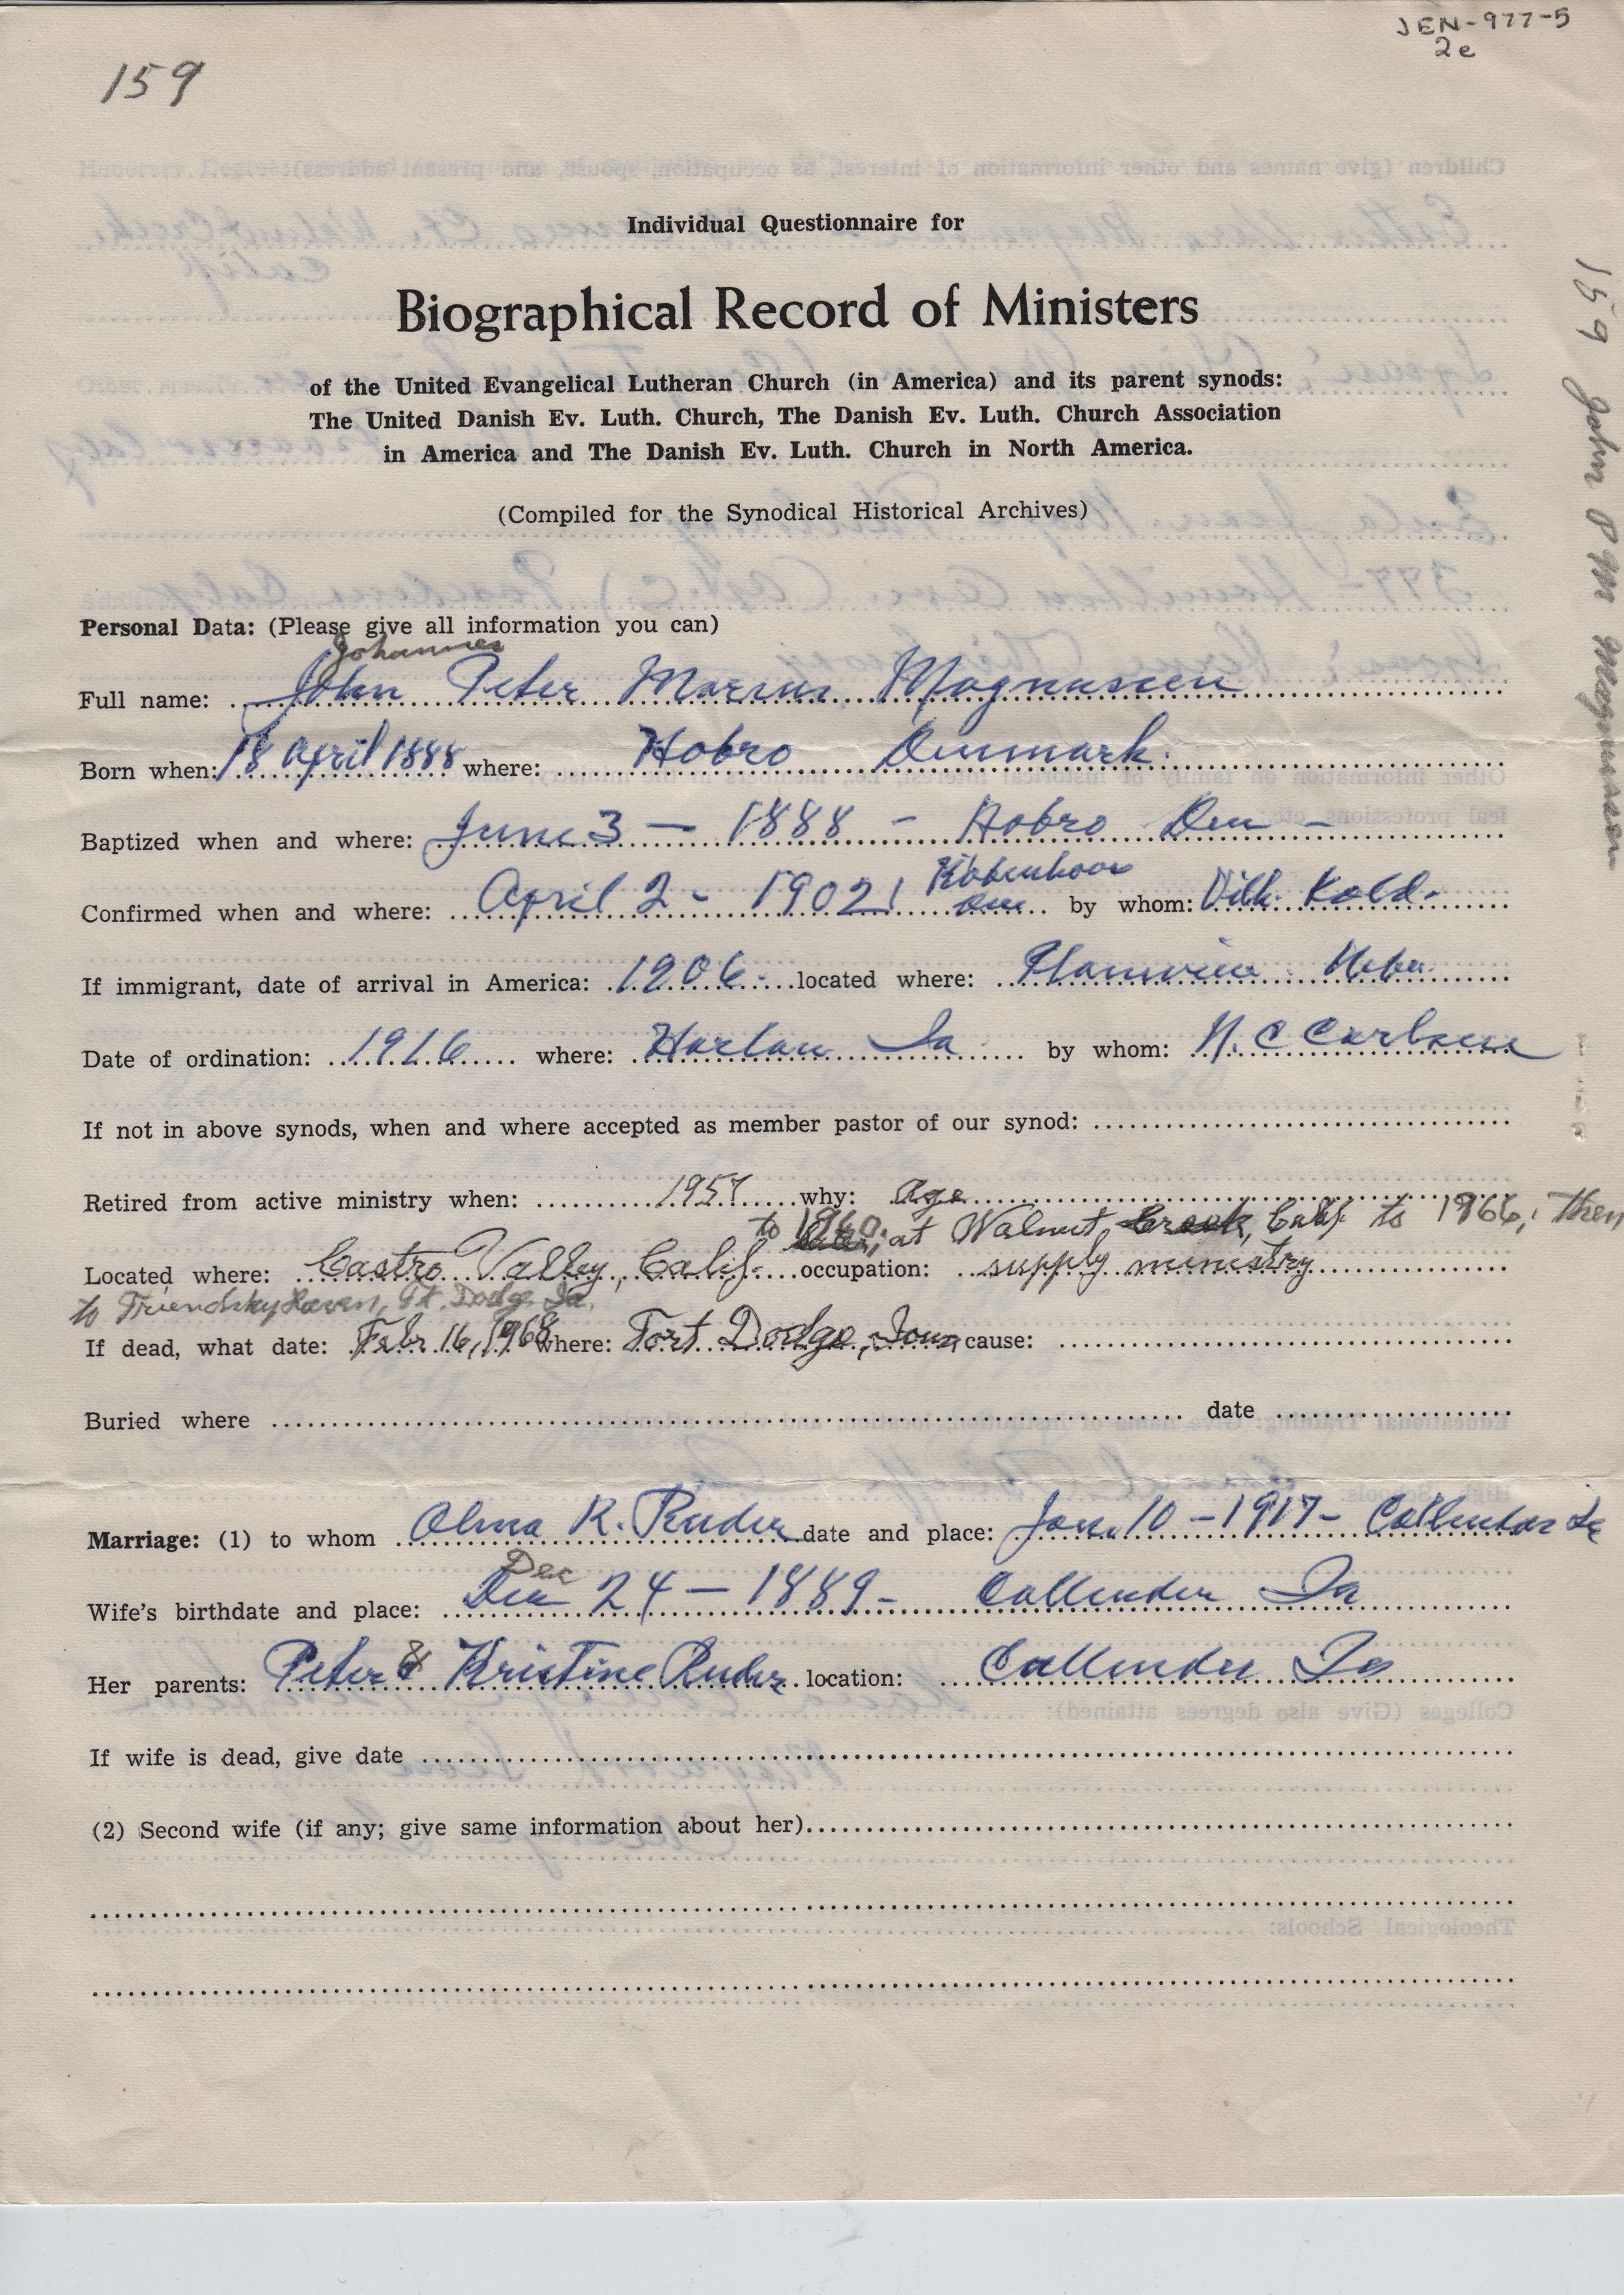 JEN-977-5
2e
159
Individual Questionnaire for
Biographical Record of Ministers
of the United Evangelical Lutheran Church (in America) and its parent synods:
The United Danish Ev. Luth. Church, The Danish Ev. Luth. Church Association
in America and The Danish Ev. Luth. Church in North America.
(Compiled for the Synodical Historical Archives)
159 John P M Magnussen
Personal Data: (Please give all information you can)
Johannes
Full name: John Peter Marius Magnussen
Born when: 18 April 1888 where: Hobro Denmark.
Baptized when and where: June 3 — 1888 - Hobro Den -
Confirmed when and where: April 2 - 1902 Köbenhavn Den by whom: Vilh. Kold.
If immigrant, date of arrival in America: 1906. located where: Plainview Nebr.
Date of ordination: 1916 where: Harlan Ia by whom: N. C Carlsen
If not in above synods, when and where accepted as member pastor of our synod:
Retired from active ministry when: 1957 why: Age
to 1960; at Walnut Creek, Calif. to 1966; then
Located where: Castro Valley, Calif. occupation: supply ministry
to Friendship Haven, Ft. Dodge Ia.
If dead, what date: Febr 16, 1968 where: Fort Dodge, Iowa cause:
Buried where date
Marriage: (1) to whom Alma K. Ruder date and place: Jan. 10 - 1917 - Callender Ia
Dec
Wife's birthdate and place: Dec 24 — 1889 - Callender Ia
Her parents: Peter & Kristine Ruder location: Callender Ia
If wife is dead, give date
(2) Second wife (if any; give same information about her)